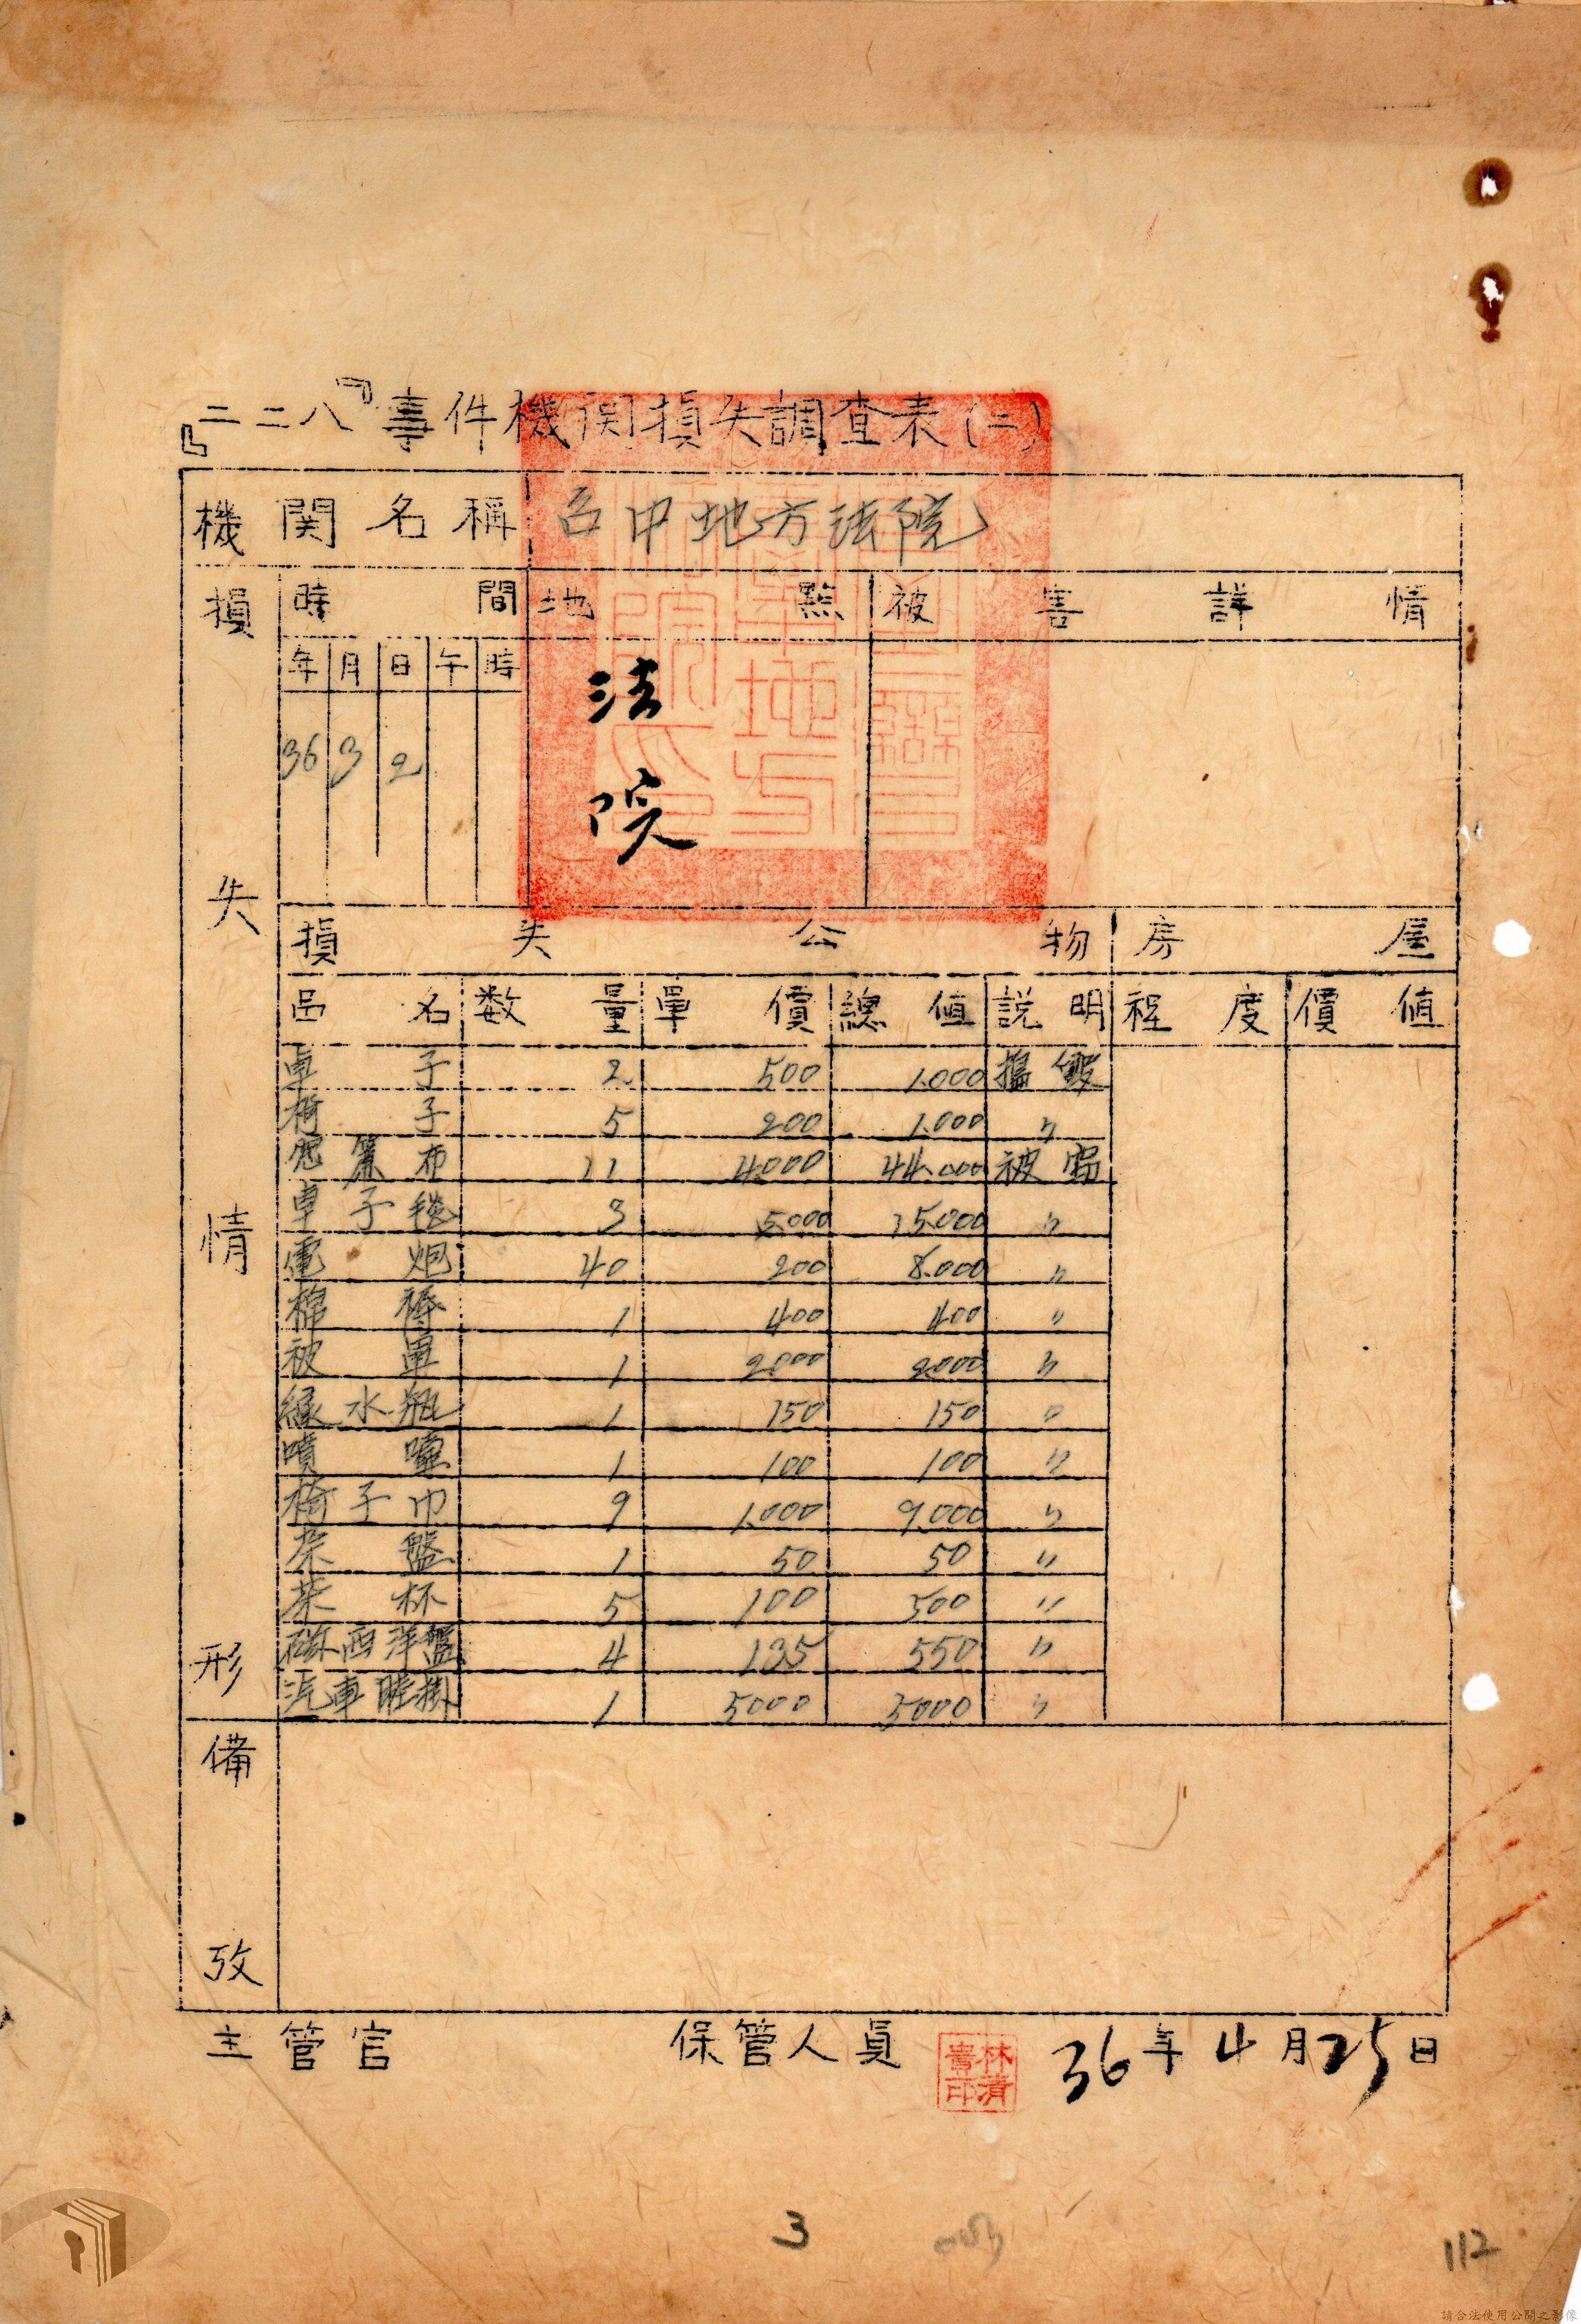 『二二八』事件機関損失調查表(二)
機関名稱 台中地方法院
損失情形
時間 地點 被害詳情
年 月 日 午 時
36 3 2
法院
損失公物 房屋
品名 数量 單價 總值 説明 程度 價值
卓子 2 500 1.000 搗毀
椅子 5 200 1.000 〃
窓簾布 11 4.000 44.000 被竊
卓子毯 3 5.000 15.000 〃
電炮 40 200 8.000 〃
棉褥 1 400 400 〃
被單 1 2.000 2.000 〃
水瓶 1 150 150 〃
噴 1 100 100 〃
椅子巾 9 1.000 9.000 〃
茶盤 1 50 50 〃
茶杯 5 100 500 〃
西洋盤 4 135 550 〃
汽車 1 5000 5000 〃
備攷
主管官 保管人員 36年4月25日
3
112
請合法使用公開之影像